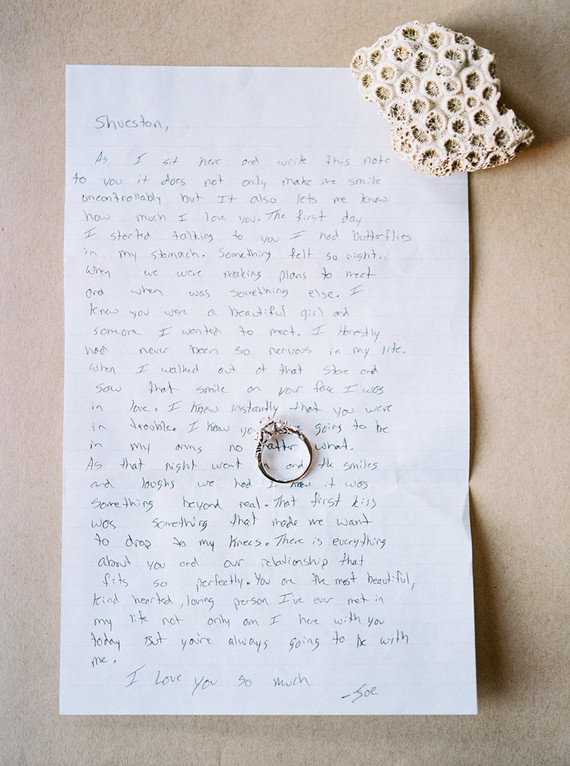 Shueston,
As I sit here and write this note
to you it does not only make me smile
uncontrollably but It also lets me know
how much I love you. The first day
I started talking to you I had butterflies
in my stomach. Something felt so right.
When we were making plans to meet
and when was something else. I
knew you were a beautiful girl and
someone I wanted to meet. I Honestly
had never been so nervous in my life.
When I walked out of that store and
saw that smile on your face I was
in love. I knew instantly that you were
in trouble. I knew you going to be
in my arms no matter what.
As that night went and the smiles
and laughs we had I knew it was
something beyond real. That first kiss
was something that made me want
to drop to my knees. There is everything
about you and our relationship that
fits so perfectly. You are the most beautiful,
kind hearted, loving person I've ever met in
my life not only am I here with you
today But you're always going to be with
me.
I Love you so much
-Joe